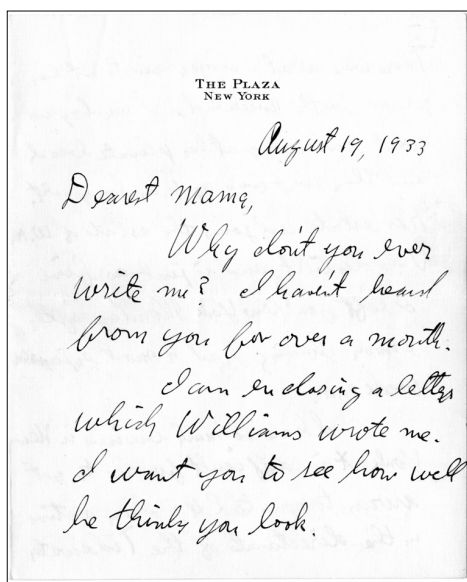 THE PLAZA
NEW YORK
August 19, 1933
Dearest Mama,
Why don't you ever
write me? I haven't heard
from you for over a month.
I am enclosing a letter
which Williams wrote me.
I want you to see how well
he thinks you look.